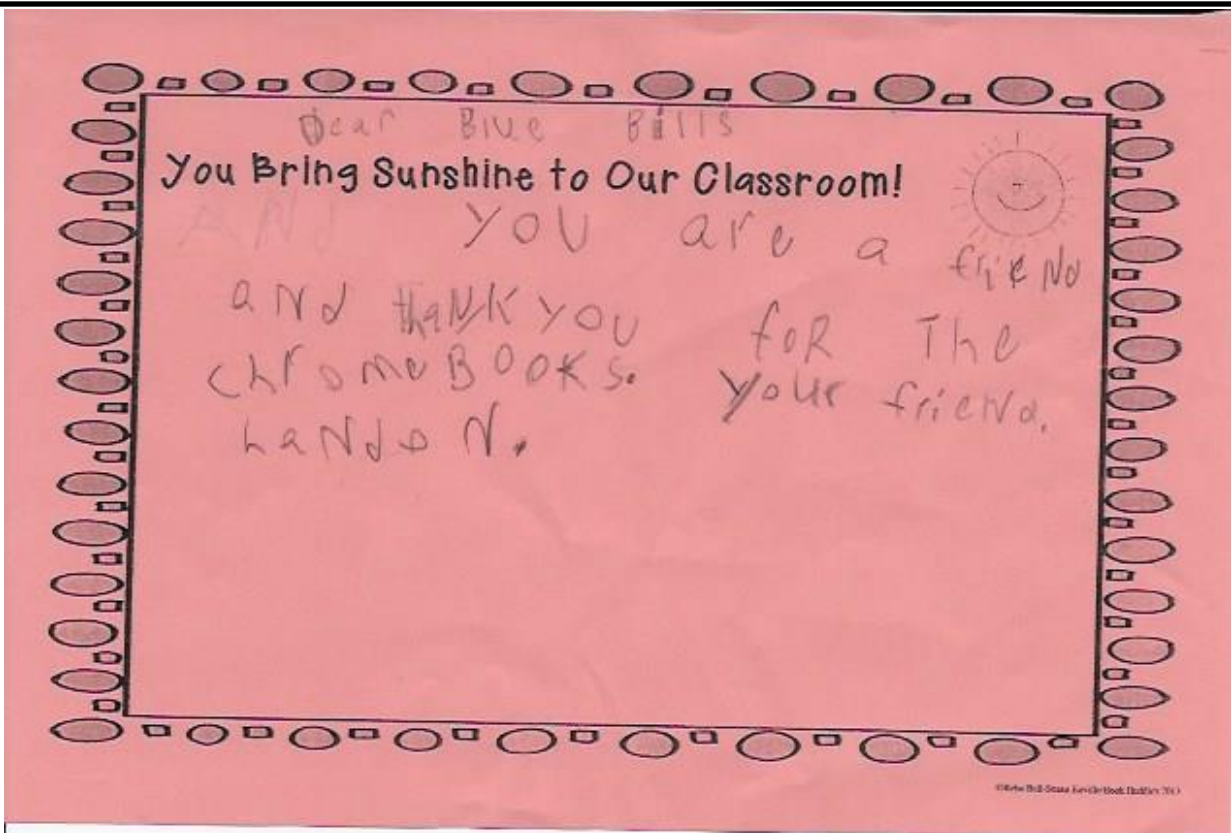 Dear Blue Bills
You Bring Sunshine to Our Classroom!
AND you are a frieNd
aNd thaNK you foR The
chromeBOOKS. your frieNd.
LaNdoN.